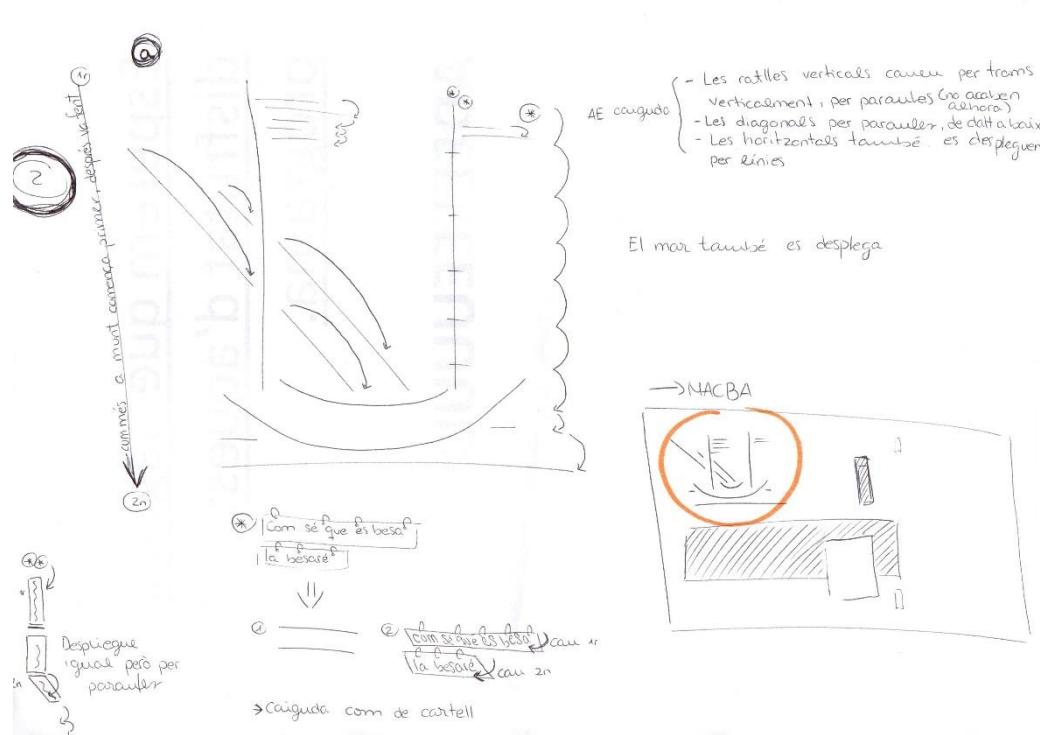 a
2
1r
com més a munt comença primer, després va fent
2n
**
*
AE caiguda
- Les ratlles verticals cauen per trams
verticalment, per paraules (no acaben
alhora)
- Les diagonals per paraules, de dalt a baix
- Les horitzontals també es despleguen
per línies
El mar també es desplega
→ MACBA
*
Com sé que es besa
la besaré
⇓
1
2
Com sé que es besa
cau 1r
la besaré
cau 2n
→ Caiguda com de cartell
**
Despliegue
igual però per
paraules
2n